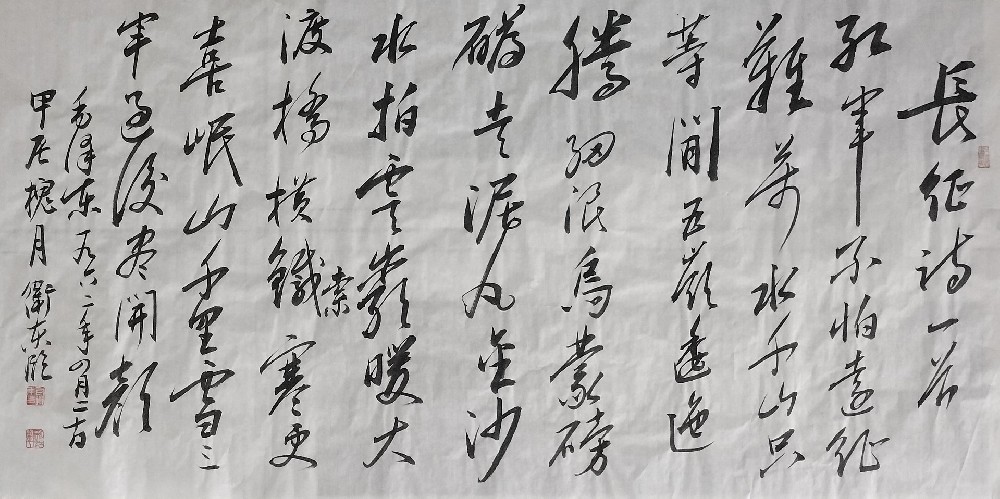 長征詩一首
紅軍不怕遠征
難萬水千山只
等閒五嶺逶迤
騰細浪烏蒙磅
礴走泥丸金沙
水拍雲崖暖大
渡橋橫鐵索寒更
喜岷山千里雪三
軍過後盡開顏
毛澤東一九六二年四月二十日
甲辰槐月衛東臨